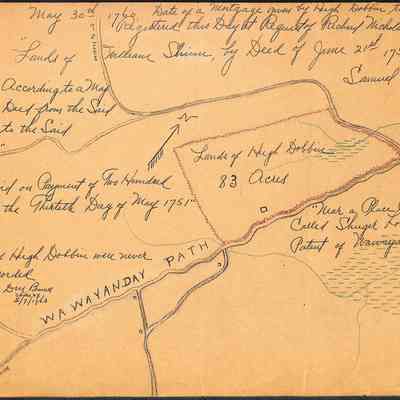 May 30th 1760 Date of a Mortgage given by High Dobbin
Registered this Day at Request of Richard Nicholl
"Lands of William Skinne, by Deed of June 21st, 175
Samuel
According to a Map
Deed from the Said
to the Said
"
Lands of High Dobbin
83 Acres
on Payment of Two Hundred
the Thirtieth Day of May 1751"
"Near a Place
Called Shuger Lo
Patent of Wawaya
High Dobbin were never
corded
WAWAYANDAY PATH